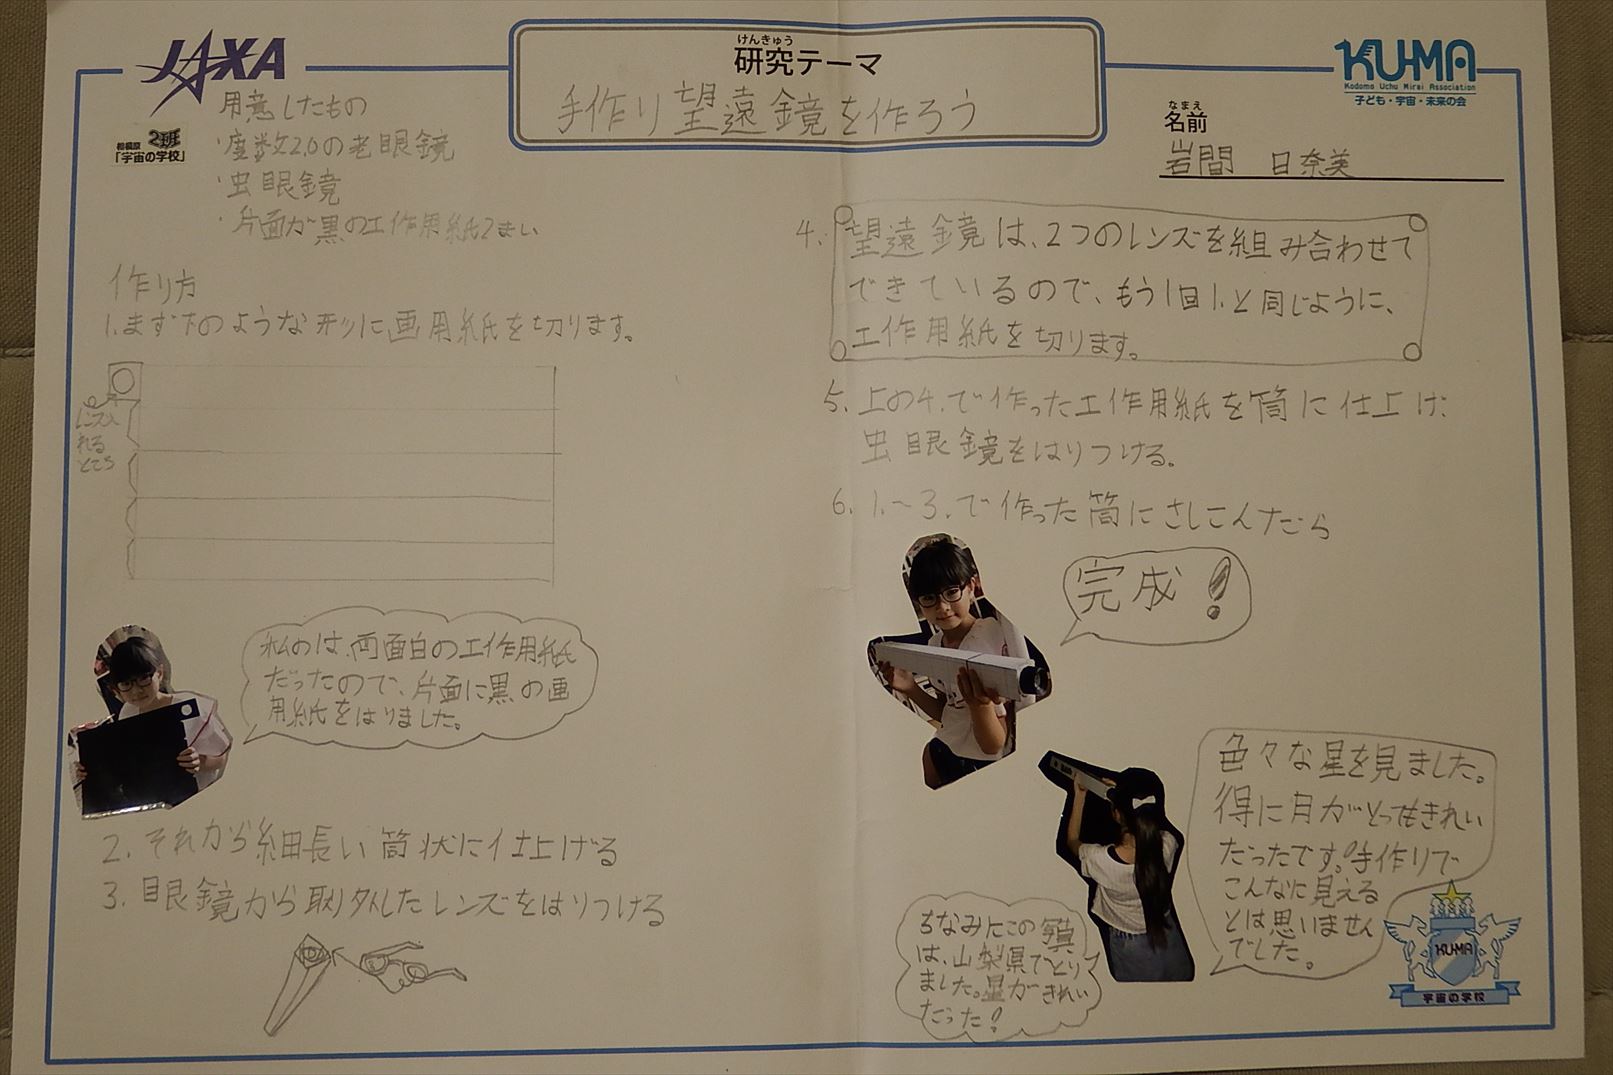 JAXA
けんきゅう
研究テーマ
手作り望遠鏡を作ろう
KU-MA
Kodomo Uchu Mirai Association
子ども・宇宙・未来の会
なまえ
名前
岩間 日奈美
相模原 2班
「宇宙の学校」
用意したもの
・度数2.0の老眼鏡
・虫眼鏡
・片面が黒の工作用紙2まい
作り方
1.まず下のような形に画用紙を切ります。
レンズ入
れる
ところ
私のは、両面白の工作用紙
だったので、片面に黒の画
用紙をはりました。
2.それから細長い筒状に仕上げる
3.眼鏡から取り外したレンズをはりつける
4.望遠鏡は、2つのレンズを組み合わせて
できているので、もう1回1.と同じように、
工作用紙を切ります。
5.上の4.で作った工作用紙を筒に仕上げ、
虫眼鏡をはりつける。
6.1.〜3.で作った筒にさしこんだら
完成!
色々な星を見ました。
得に月がとってもきれい
だったです。手作りで
こんなに見える
とは思いません
でした。
ちなみにこの写真
は、山梨県でとり
ました。星がきれい
だった!
KU-MA
宇宙の学校